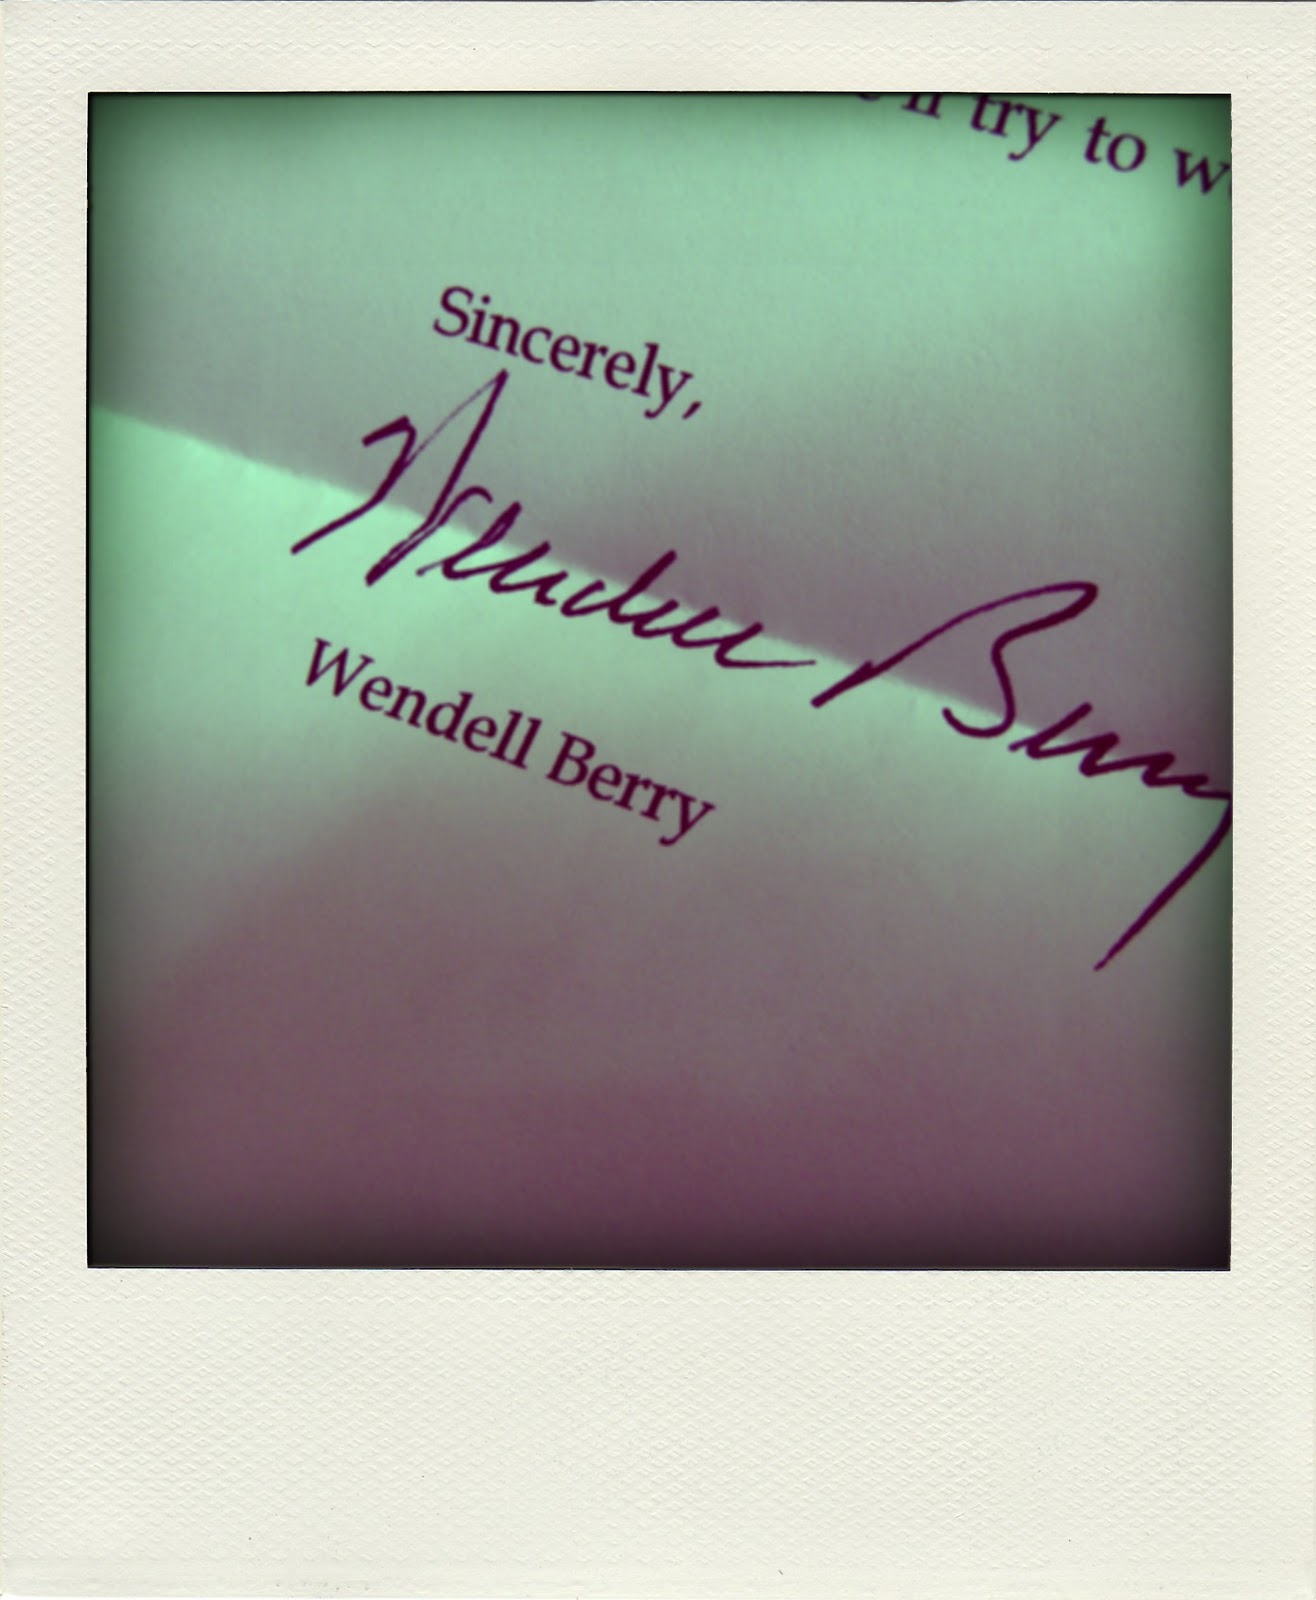 try to
Sincerely,
Wendell Berry
Wendell Berry